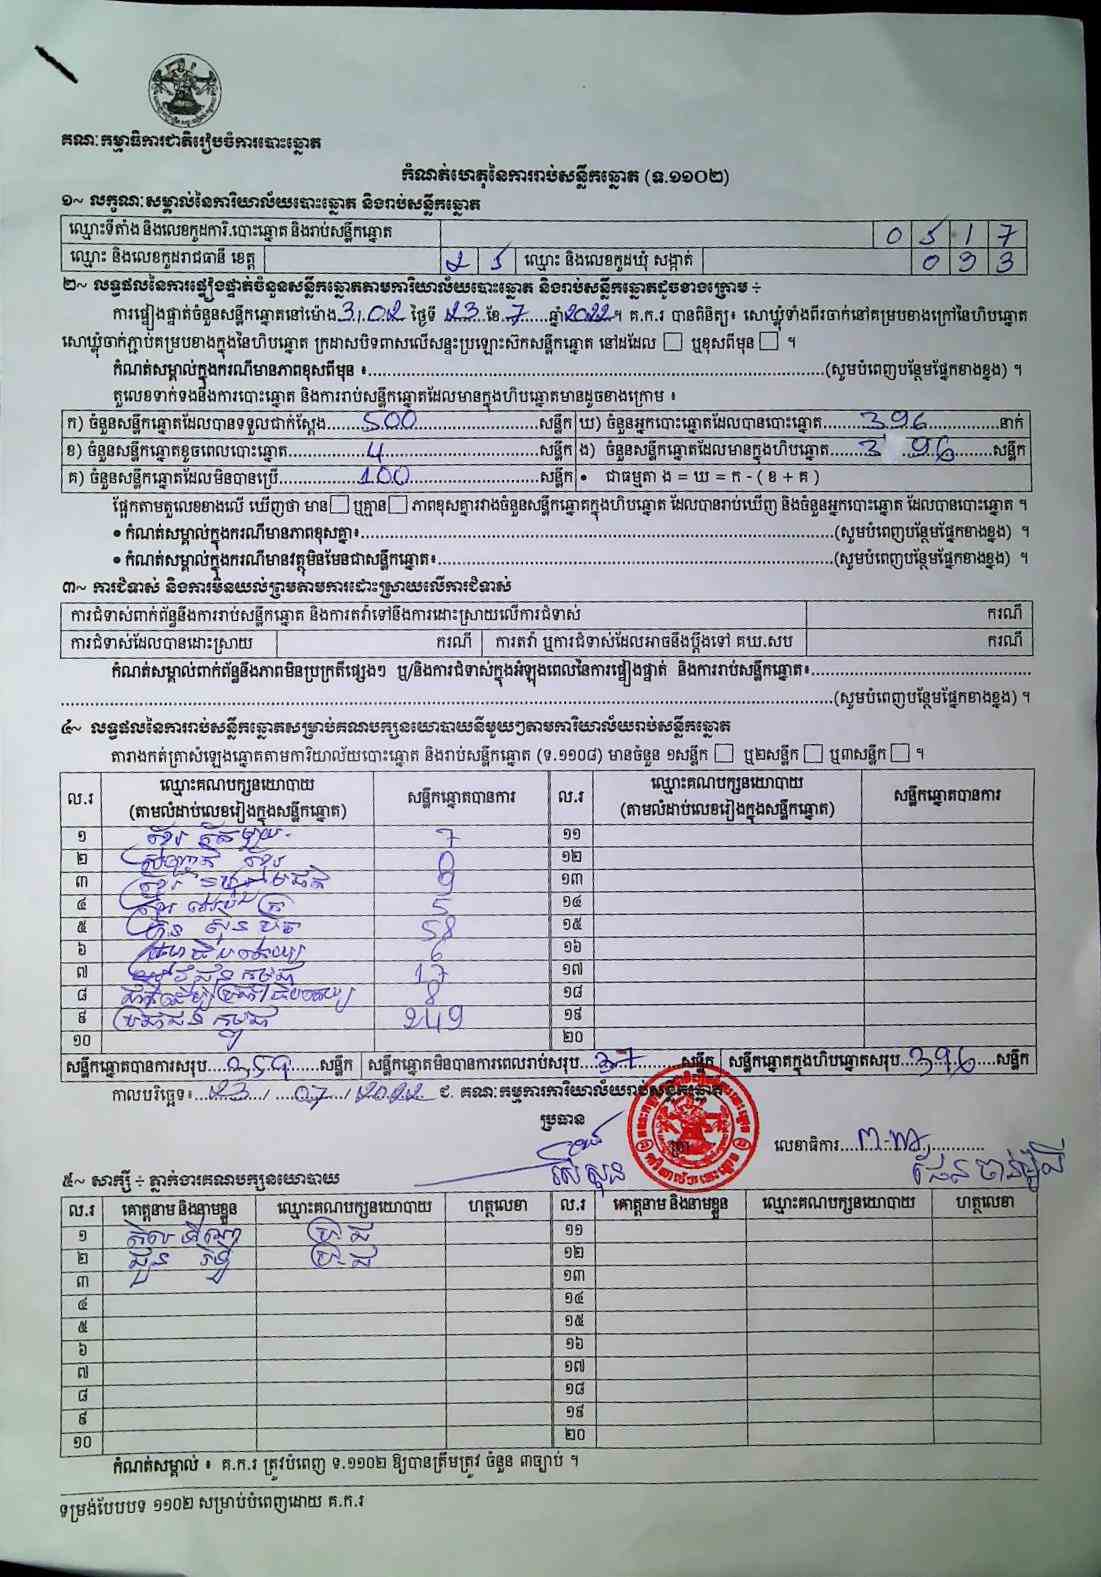 គណៈកម្មាធិការជាតិរៀបចំការបោះឆ្នោត
កំណត់ហេតុនៃការរាប់សន្លឹកឆ្នោត (ទ.១១០២)
១~ លក្ខណៈសម្គាល់នៃការិយាល័យបោះឆ្នោត និងរាប់សន្លឹកឆ្នោត
ឈ្មោះទីតាំង និងលេខកូដការិ.បោះឆ្នោត និងរាប់សន្លឹកឆ្នោត 0517
ឈ្មោះ និងលេខកូដរាជធានី ខេត្ត 25 ឈ្មោះ និងលេខកូដឃុំ សង្កាត់ 033
២~ លទ្ធផលនៃការផ្ទៀងផ្ទាត់ចំនួនសន្លឹកឆ្នោតតាមការិយាល័យបោះឆ្នោត និងរាប់សន្លឹកឆ្នោតដូចខាងក្រោម ÷
ការផ្ទៀងផ្ទាត់ចំនួនសន្លឹកឆ្នោតនៅម៉ោង 3:02 ថ្ងៃទី 23 ខែ 7 ឆ្នាំ 2022 ។ គ.ក.រ បានពិនិត្យ៖ សោឃ្លុំទាំងពីរចាក់នៅគម្របខាងក្រៅនៃហិបឆ្នោត
សោឃ្លុំចាក់ភ្ជាប់គម្របខាងក្នុងនៃហិបឆ្នោត ក្រដាសបិទពាសលើសន្ទះប្រឡោះសិកសន្លឹកឆ្នោត នៅដដែល ☐ ឬខុសពីមុន ☐ ។
កំណត់សម្គាល់ក្នុងករណីមានភាពខុសពីមុន ៖ (សូមបំពេញបន្ថែមផ្នែកខាងខ្នង) ។
តួលេខទាក់ទងនឹងការបោះឆ្នោត និងការរាប់សន្លឹកឆ្នោតដែលមានក្នុងហិបឆ្នោតមានដូចខាងក្រោម ៖
ក) ចំនួនសន្លឹកឆ្នោតដែលបានទទួលជាក់ស្តែង 500 សន្លឹក ឃ) ចំនួនអ្នកបោះឆ្នោតដែលបានបោះឆ្នោត 396 នាក់
ខ) ចំនួនសន្លឹកឆ្នោតខូចពេលបោះឆ្នោត 4 សន្លឹក ង) ចំនួនសន្លឹកឆ្នោតដែលមានក្នុងហិបឆ្នោត 396 សន្លឹក
គ) ចំនួនសន្លឹកឆ្នោតដែលមិនបានប្រើ 100 សន្លឹក • ជាធម្មតា ង = ឃ = ក - ( ខ + គ )
ផ្អែកតាមតួលេខខាងលើ ឃើញថា មាន ☐ ឬគ្មាន ☐ ភាពខុសគ្នារវាងចំនួនសន្លឹកឆ្នោតក្នុងហិបឆ្នោត ដែលបានរាប់ឃើញ និងចំនួនអ្នកបោះឆ្នោត ដែលបានបោះឆ្នោត ។
• កំណត់សម្គាល់ក្នុងករណីមានភាពខុសគ្នា៖ (សូមបំពេញបន្ថែមផ្នែកខាងខ្នង) ។
• កំណត់សម្គាល់ក្នុងករណីមានវត្ថុមិនមែនជាសន្លឹកឆ្នោត៖ (សូមបំពេញបន្ថែមផ្នែកខាងខ្នង) ។
៣~ ការជំទាស់ និងការមិនយល់ព្រមតាមការដោះស្រាយលើការជំទាស់
ការជំទាស់ពាក់ព័ន្ធនឹងការរាប់សន្លឹកឆ្នោត និងការតវ៉ាទៅនឹងការដោះស្រាយលើការជំទាស់ ករណី
ការជំទាស់ដែលបានដោះស្រាយ ករណី ការតវ៉ា ឬការជំទាស់ដែលអាចនឹងប្តឹងទៅ គឃ.សប ករណី
កំណត់សម្គាល់ពាក់ព័ន្ធនឹងភាពមិនប្រក្រតីផ្សេងៗ ឬ/និងការជំទាស់ក្នុងអំឡុងពេលនៃការផ្ទៀងផ្ទាត់ និងការរាប់សន្លឹកឆ្នោត៖
(សូមបំពេញបន្ថែមផ្នែកខាងខ្នង) ។
៤~ លទ្ធផលនៃការរាប់សន្លឹកឆ្នោតសម្រាប់គណបក្សនយោបាយនីមួយៗតាមការិយាល័យរាប់សន្លឹកឆ្នោត
តារាងកត់ត្រាសំឡេងឆ្នោតតាមការិយាល័យបោះឆ្នោត និងរាប់សន្លឹកឆ្នោត (ទ.១១០៨) មានចំនួន ១សន្លឹក ☐ ឬ២សន្លឹក ☐ ឬ៣សន្លឹក ☐ ។
ល.រ ឈ្មោះគណបក្សនយោបាយ (តាមលំដាប់លេខរៀងក្នុងសន្លឹកឆ្នោត) សន្លឹកឆ្នោតបានការ ល.រ ឈ្មោះគណបក្សនយោបាយ (តាមលំដាប់លេខរៀងក្នុងសន្លឹកឆ្នោត) សន្លឹកឆ្នោតបានការ
១ ខ្មែរ តែមួយ 7 ១១
២ ខ្មែរ 0 ១២
៣ ខ្មែរ 9 ១៣
៤ ខ្មែរ 5 ១៤
៥ ហ៊្វុនស៊ិនប៉ិច 58 ១៥
៦ 6 ១៦
៧ កម្ពុជា 17 ១៧
៨ 8 ១៨
៩ ប្រជាជន កម្ពុជា 249 ១៩
១០ ២០
សន្លឹកឆ្នោតបានការសរុប 359 សន្លឹក សន្លឹកឆ្នោតមិនបានការពេលរាប់សរុប 37 សន្លឹក សន្លឹកឆ្នោតក្នុងហិបឆ្នោតសរុប 396 សន្លឹក
កាលបរិច្ឆេទ៖ 23 / 07 / 2022 ជ. គណៈកម្មការការិយាល័យរាប់សន្លឹកឆ្នោត
ប្រធាន
លេខាធិការ
៥~ សាក្សី ÷ ភ្នាក់ងារគណបក្សនយោបាយ
ល.រ គោត្តនាម និងនាមខ្លួន ឈ្មោះគណបក្សនយោបាយ ហត្ថលេខា ល.រ គោត្តនាម និងនាមខ្លួន ឈ្មោះគណបក្សនយោបាយ ហត្ថលេខា
១ ប្រ.ជ ១១
២ ប្រ.ជ ១២
៣ ១៣
៤ ១៤
៥ ១៥
៦ ១៦
៧ ១៧
៨ ១៨
៩ ១៩
១០ ២០
កំណត់សម្គាល់ ៖ គ.ក.រ ត្រូវបំពេញ ទ.១១០២ ឱ្យបានត្រឹមត្រូវ ចំនួន ៣ច្បាប់ ។
ទម្រង់បែបបទ ១១០២ សម្រាប់បំពេញដោយ គ.ក.រ